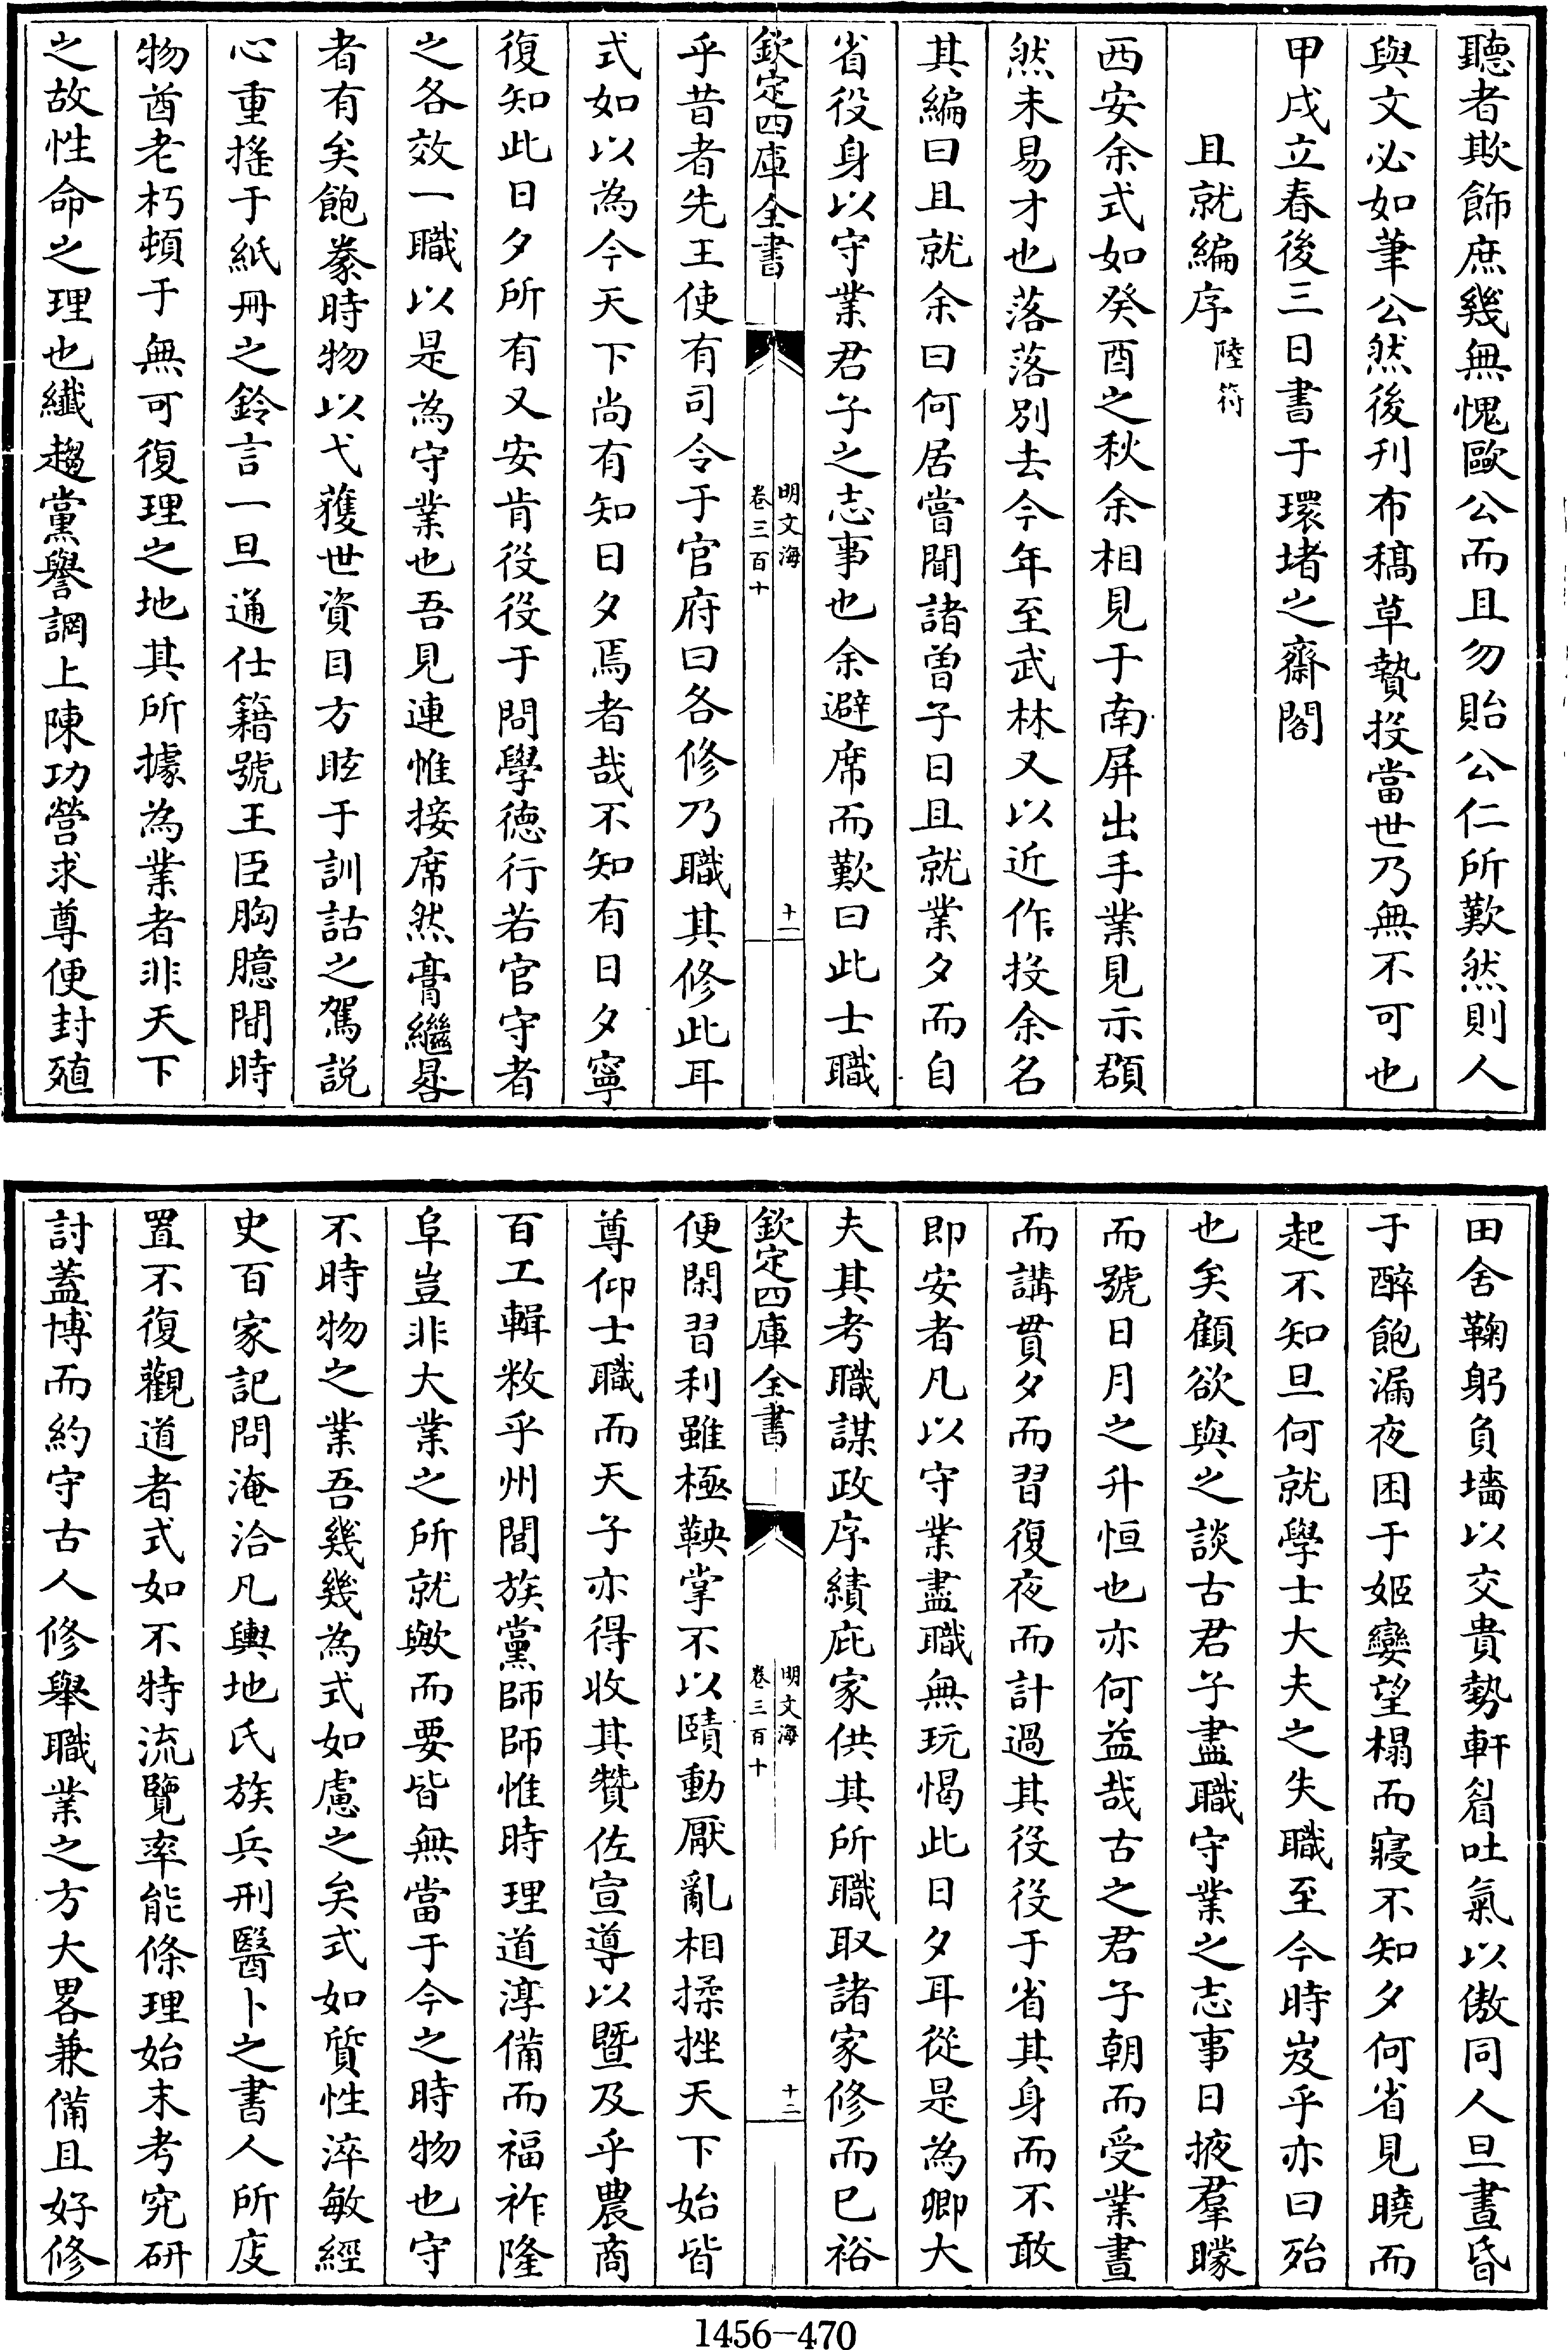 聽者欺飾庶幾無愧歐公而且勿貽公仁所歎然則人
與文必如筆公然後刋布稿草贄投當世乃無不可也
甲戌立春後三日書于環堵之齋閣
且就編序 陸符
西安余式如癸酉之秋余相見于南屏出手業見示頵
然未易才也落落別去今年至武林又以近作投余名
其編曰且就余曰何居嘗聞諸曽子日且就業夕而自
省役身以守業君子之志事也余避席而歎曰此士職
欽定四庫全書
明文海
卷三百十
十一
乎昔者先王使有司令于官府曰各修乃職其修此耳
式如以為今天下尚有知日夕焉者哉不知有日夕寧
復知此日夕所有又安肯役役于問學徳行若官守者
之各效一職以是為守業也吾見連帷接席然膏繼晷
者有矣飽豢時物以弋獲世資目方眩于訓詁之駕説
心重搖于紙冊之鈴言一旦通仕籍號王臣胸臆間時
物酋老朽頓于無可復理之地其所據為業者非天下
之故性命之理也纎趨黨譽調上陳功營求尊便封殖
田舍鞠躬負墻以交貴勢軒眉吐氣以傲同人旦晝昏
于醉飽漏夜困于姬孌望榻而寢不知夕何省見曉而
起不知旦何就學士大夫之失職至今時岌乎亦曰殆
也矣顧欲與之談古君子盡職守業之志事日掖羣矇
而號日月之升恒也亦何益哉古之君子朝而受業晝
而講貫夕而習復夜而計過其役役于省其身而不敢
即安者凡以守業盡職無玩愒此日夕耳從是為卿大
夫其考職謀政序績庇家供其所職取諸家修而已裕
欽定四庫全書
明文海
卷三百十
十二
便閑習利雖極鞅掌不以賾動厭亂相揉挫天下始皆
尊仰士職而天子亦得收其贊佐宣導以暨及乎農商
百工輯敉乎州閭族黨師師惟時理道淳備而福祚隆
阜豈非大業之所就歟而要皆無當于今之時物也守
不時物之業吾幾幾為式如慮之矣式如質性淬敏經
史百家記問淹洽凡輿地氏族兵刑醫卜之書人所庋
置不復觀道者式如不特流覽率能條理始末考究研
討蓋博而約守古人修舉職業之方大畧兼備且好修
1456—470